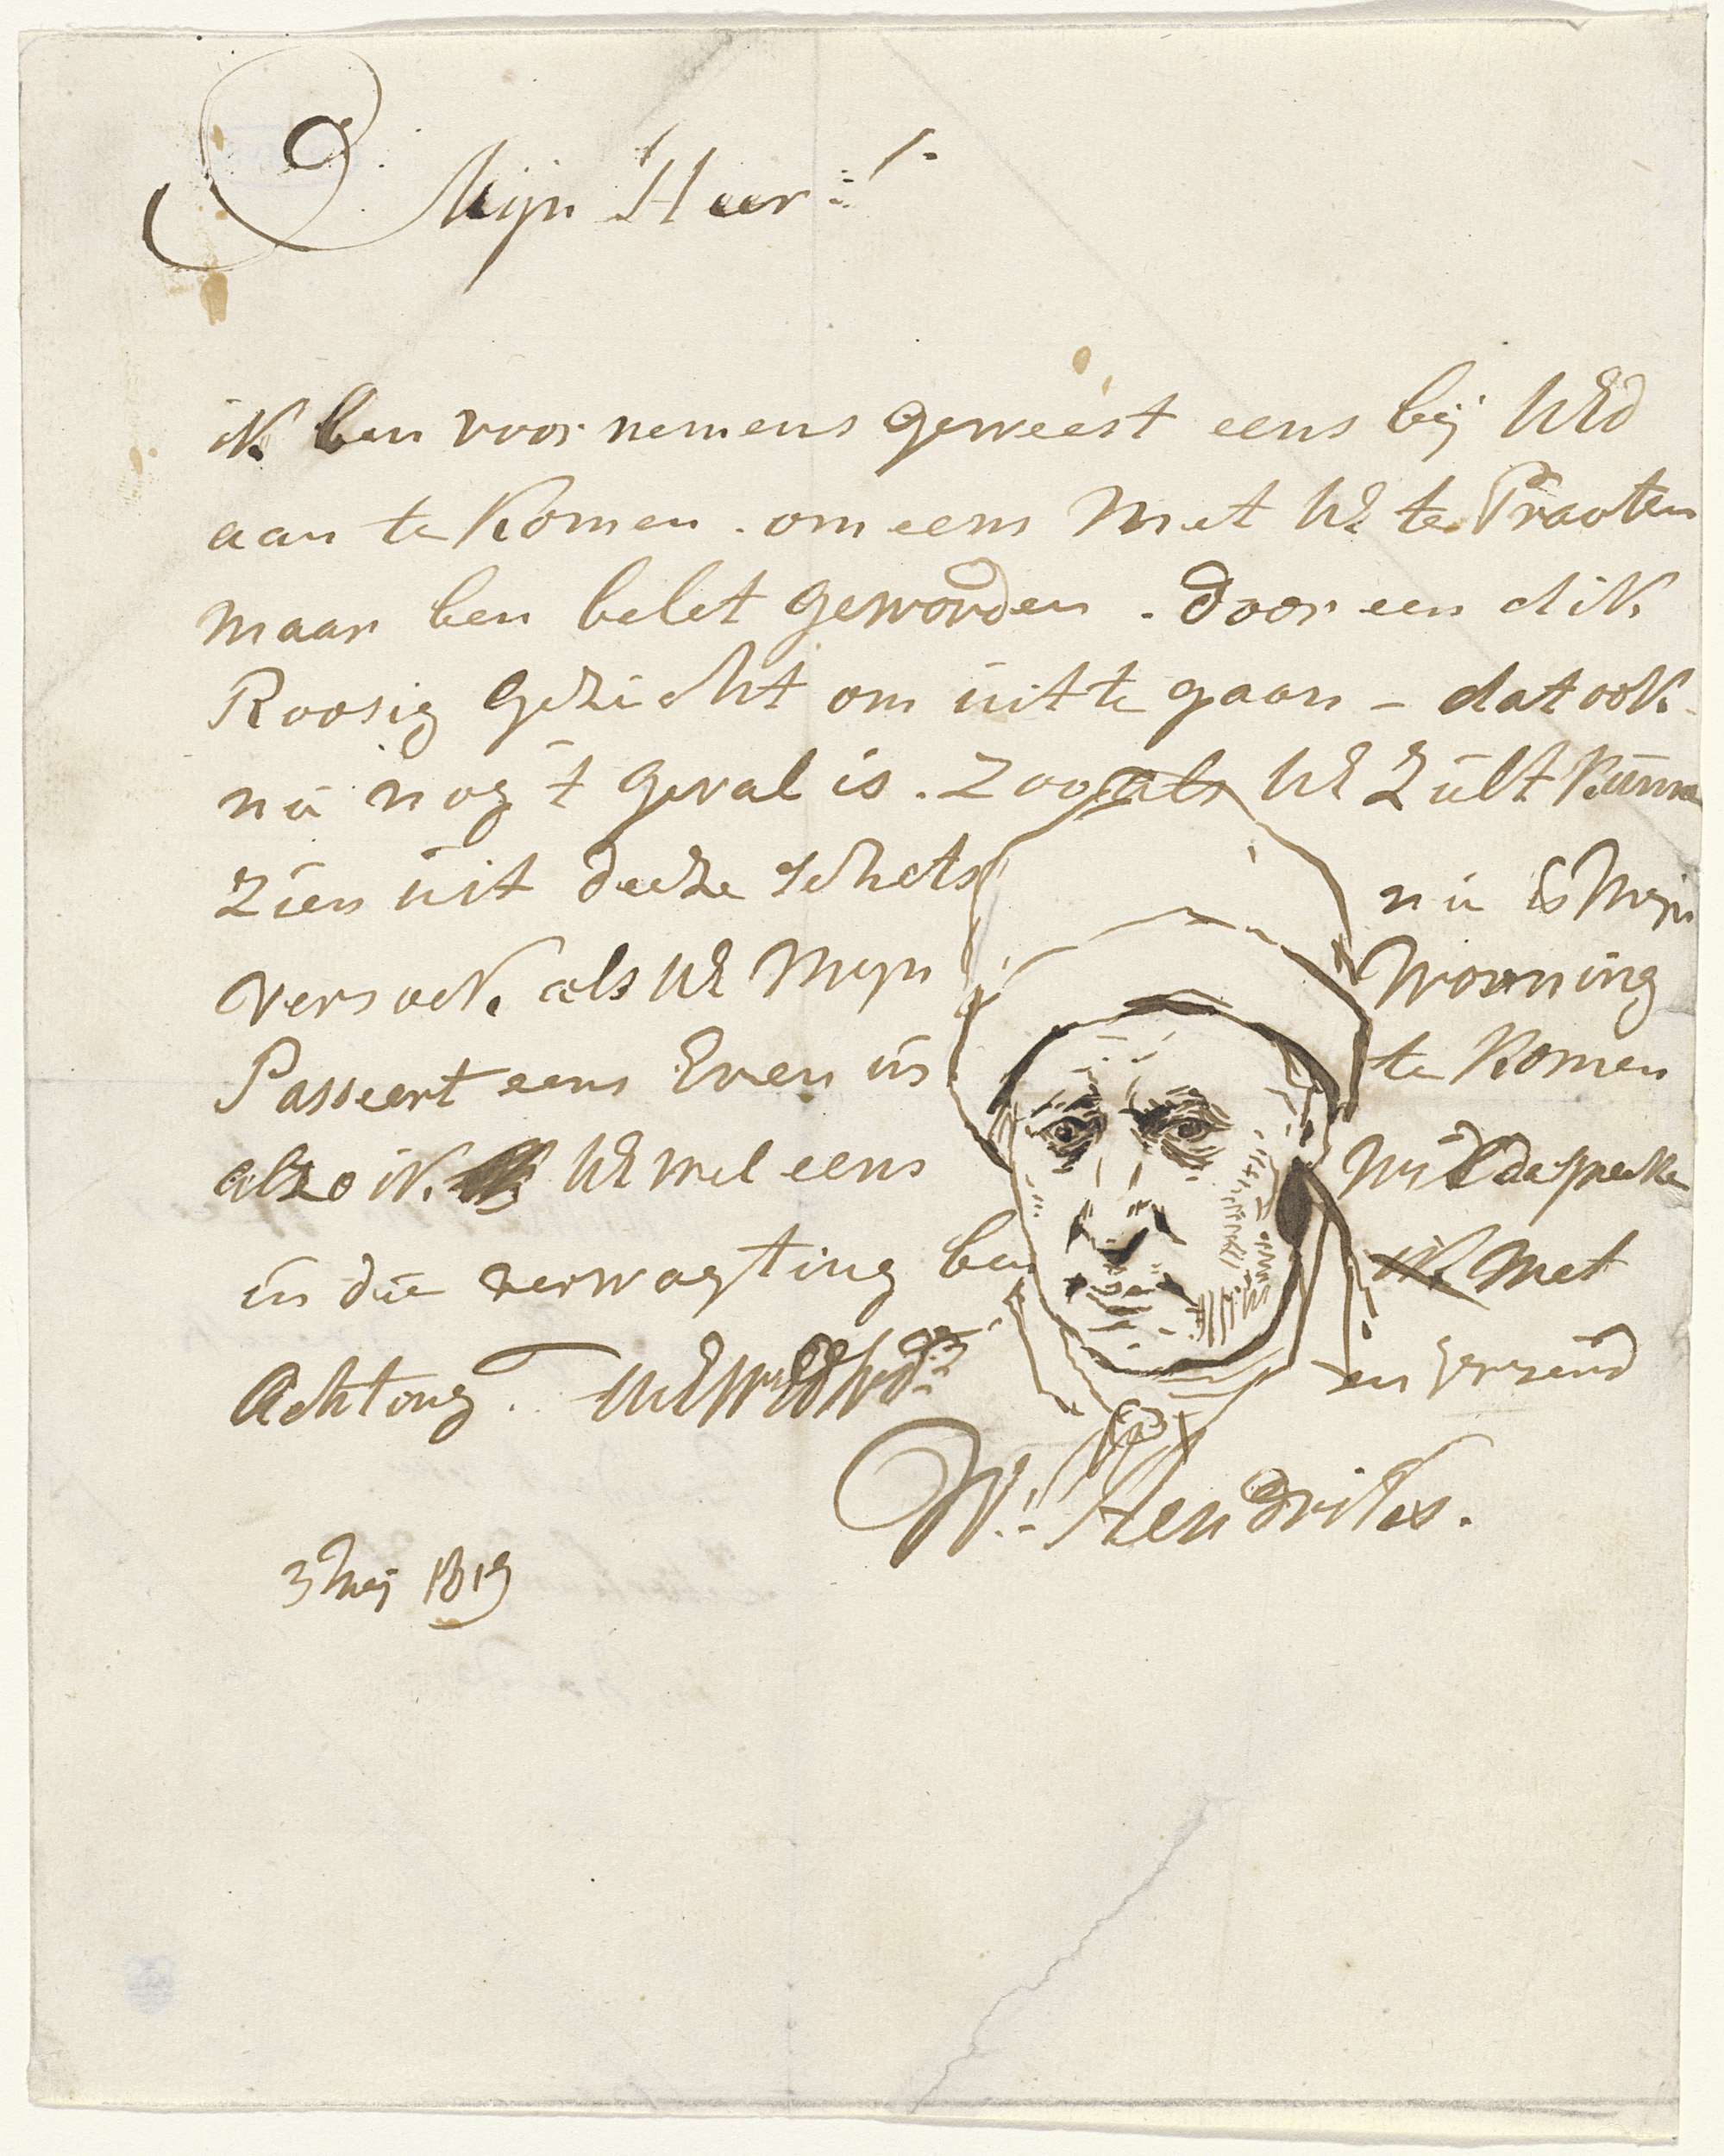 Mijn Heer
ik ben voornemens geweest eens bij UEd
aan te komen . om eens Met UE te Praaten
Maar ben belet geworden . door een dik
Roosig gezicht om uit te gaan - dat ook
nu nog t geval is . Zooals UE Zult kunne
Zien uit deeze schets nu is Mijn
versoek als UE Mijn Wooning
Passeert eens Even in te komen
alzo ik UE wel eens wilde spreeke
in die verwagting ben ik Met
Achting . en vriend
W: Hendriks .
3 Meij 1819